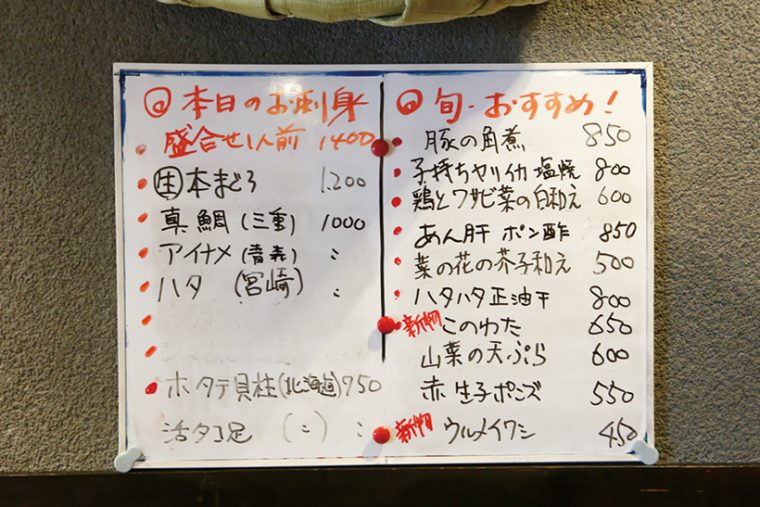 ◎本日のお刺身
盛合せ1人前 1400
・㊣本まぐろ 1.200
・真鯛(三重) 1000
・アイナメ(青森) 〃
・ハタ (宮崎) 〃
・ホタテ貝柱(北海道) 750
活タコ足 (〃) 〃
◎旬・おすすめ!
・豚の角煮 850
・子持ちヤリイカ塩焼 800
・鶏とワサビ菜の白和え 600
・あん肝 ポン酢 850
・菜の花の芥子和え 500
・ハタハタ正油干 800
・新物 このわた 650
山菜の天ぷら 600
赤生子ポンズ 550
新物 ウルメイワシ 450